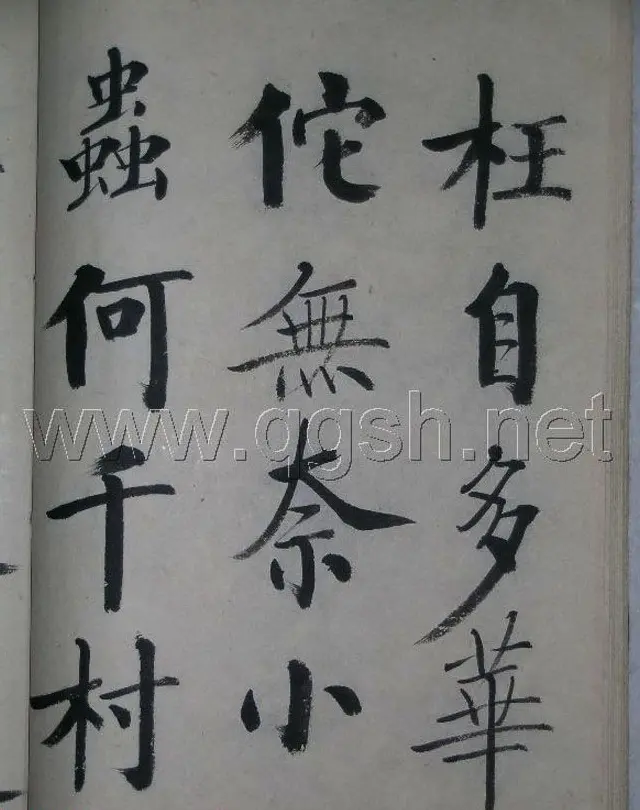 枉自多華
佗無奈小
蟲何千村
www.qgsh.net